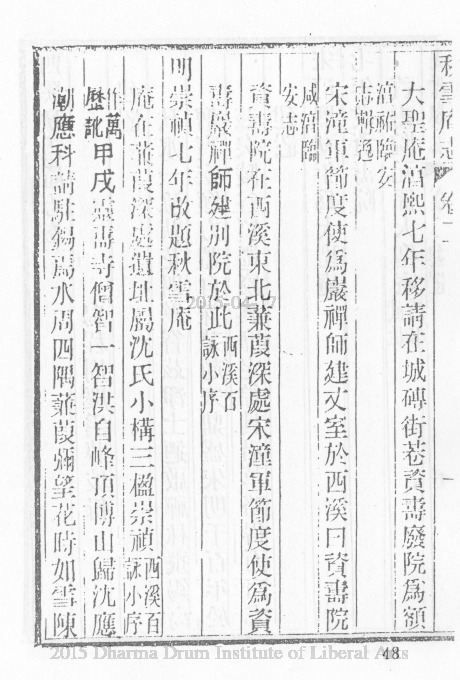 秋雪庵志 卷一
大聖庵淳熙七年移請在城磚街巷資壽廢院爲額
淳祐臨安
志輯逸
宋潼軍節度使爲巖禪師建丈室於西溪曰資壽院
咸淳臨
安志
資壽院在西溪東北蒹葭深處宋潼軍節度使爲資
壽巖禪師建別院於此西溪百
詠小序
明崇禎七年改題秋雪庵
庵在蒹葭深處遺址屬沈氏小構三楹崇禎西溪百
詠小序
作萬
歷訛甲戌靈壽寺僧智一智洪自峰頂博山歸沈應
潮應科請駐錫焉水周四隅蒹葭彌望花時如雪陳
48
2015-04-17
2015 Dharma Drum Institute of Liberal Arts